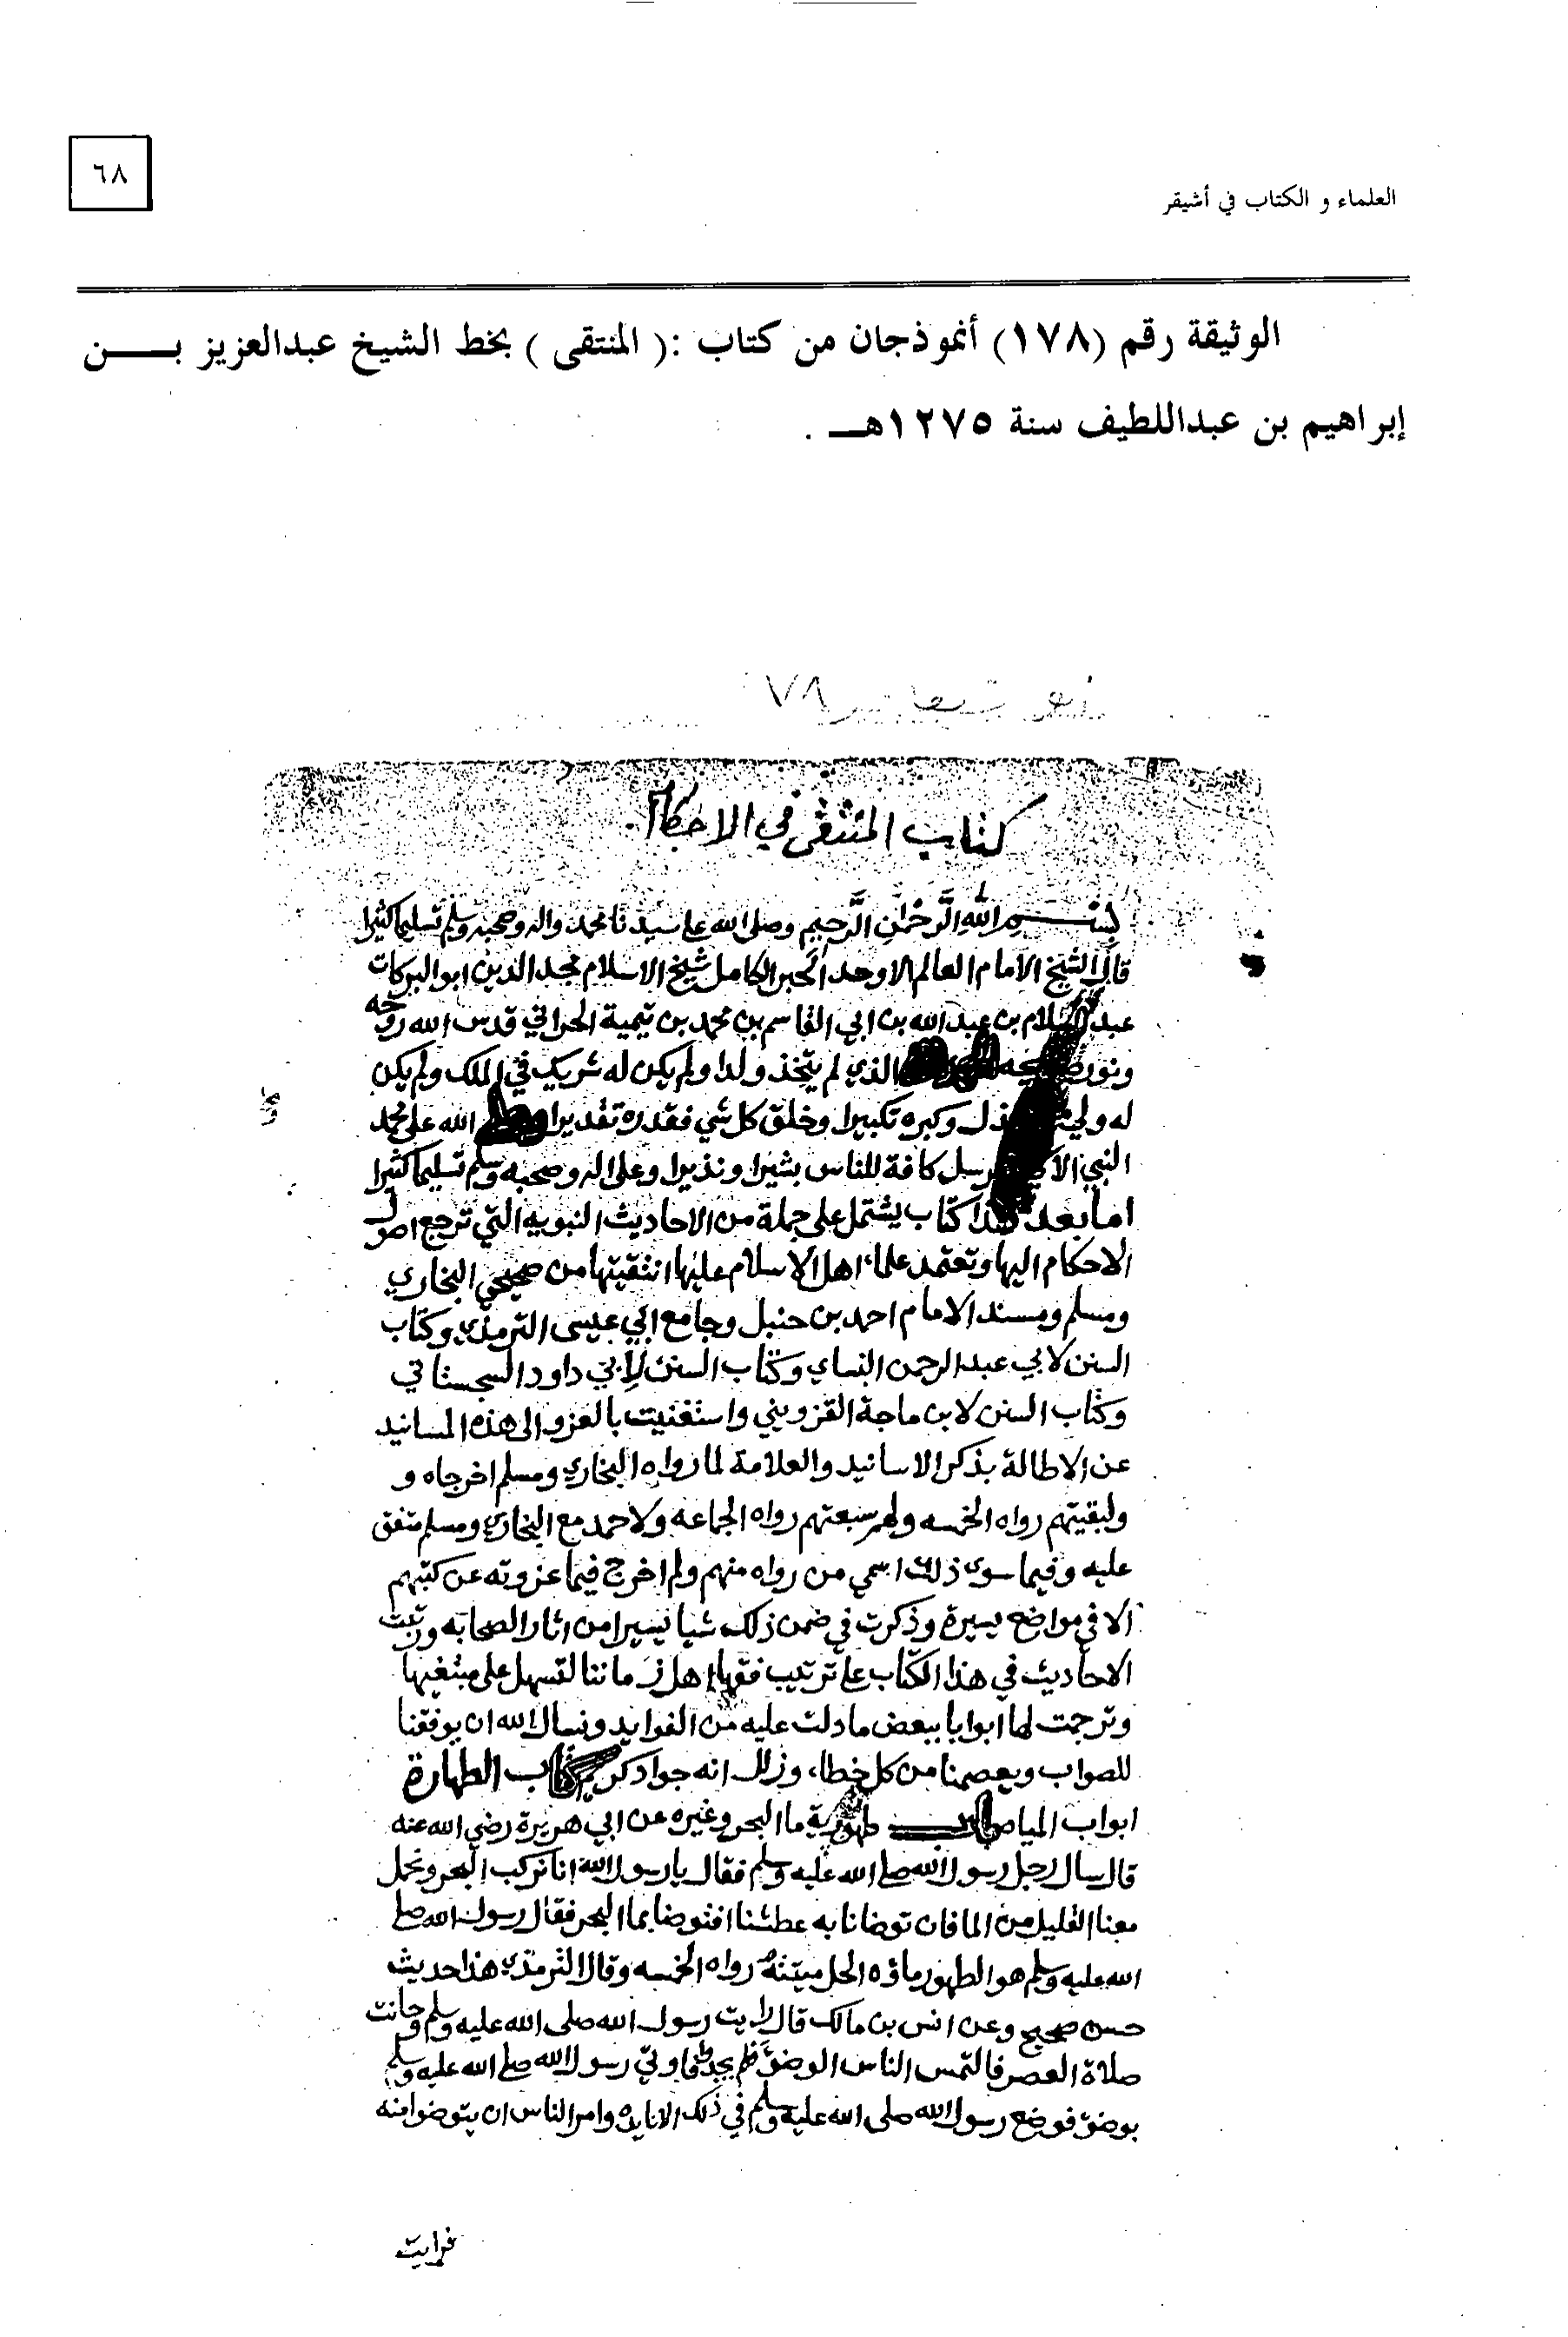 ٦٨
العلماء و الكتاب في أشيقر
الوثيقة رقم (١٧٨) أنموذجان من كتاب :( المنتقى ) بخط الشيخ عبدالعزيز بـــــن
إبراهيم بن عبداللطيف سنة ١٢٧٥هــ .
٧٨
كتاب المنتقى في الاحكام
بِسْمِ اللهِ الرَّحْمٰنِ الرَّحِيمِ وصلى الله على سيدنا محمد واله وصحبه وسلم تسليما كثيرا
قال الشيخ الامام العالم الاوحد الحبر الكامل شيخ الاسلام مجد الدين ابو البركات
عبد السلام بن عبد الله بن ابي القاسم بن محمد بن تيمية الحراني قدس الله روحه
ونور الذي لم يتخذ ولدا ولم يكن له شريك في الملك ولم يكن
له ولي الذل وكبره تكبيرا وخلق كل شي فقدره تقديرا الله على محمد
النبي كافة للناس بشيرا ونذيرا وعلى اله وصحبه وسلم تسليما كثيرا
اما بعد هذا كتاب يشتمل على جملة من الاحاديث النبويه التي ترجع اصول
الاحكام اليها وتعتمد علماء اهل الاسلام عليها انتقيتها من صحيحي البخاري
ومسلم ومسند الامام احمد بن حنبل وجامع ابي عيسى الترمذي وكتاب
السنن لابي عبد الرحمن النساي وكتاب السنن لابي داود السجستاني
وكتاب السنن لابن ماجة القزويني واستغنيت بالعزو الى هذه المسانيد
عن الاطالة بذكر الاسانيد والعلامة لما رواه البخاري ومسلم اخرجاه و
ولبقيتهم رواه الخمسه ولهم سبعتهم رواه الجماعه ولاحمد مع البخاري ومسلم متفق
عليه وفيما سوى ذلك اسمي من رواه منهم ولم اخرج فيما عزوته عن كتبهم
الا في مواضع يسيرة وذكرت في ضمن ذلك شيا يسيرا من اثار الصحابه ورتبت
الاحاديث في هذا الكتاب على ترتيب فقهاء اهل زماننا لتسهل على مبتغيها
وترجمت لها ابوابا ببعض ما دلت عليه من الفوايد ونسال الله ان يوفقنا
للصواب ويعصمنا من كل خطاء وزلل انه جواد كريم كتاب الطهارة
ابواب المياه باب طهورية ما البحر وغيره عن ابي هريرة رضي الله عنه
قال سال رجل رسول الله صلى الله عليه وسلم فقال يا رسول الله انا نركب البحر ونحمل
معنا القليل من الما فان توضانا به عطشنا افنتوضا بما البحر فقال رسول الله صلى
الله عليه وسلم هو الطهور ماؤه الحل ميتته رواه الخمسه وقال الترمذي هذا حديث
حسن صحيح وعن انس بن مالك قال رايت رسول الله صلى الله عليه وسلم وحانت
صلاة العصر فالتمس الناس الوضؤ فلم يجدوا فاوتي رسول الله صلى الله عليه وسلم
بوضؤ فوضع رسول الله صلى الله عليه وسلم في ذلك الانا يده وامر الناس ان يتوضوا منه
فرايت